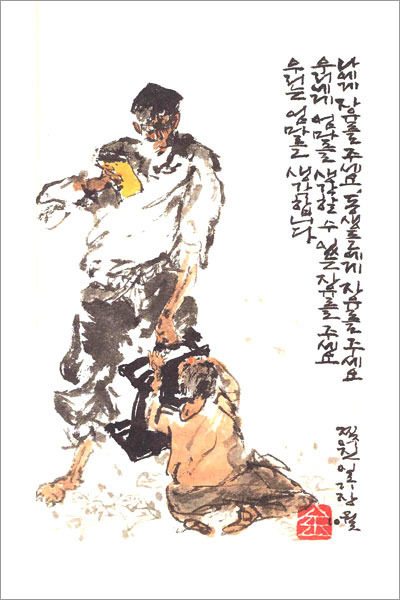 나에게 자유를 주세요 동생들에게 자유를 주세요
우리에게 엄마를 생각할 수 있는 자유를 주세요
우리는 엄마를 생각합니다